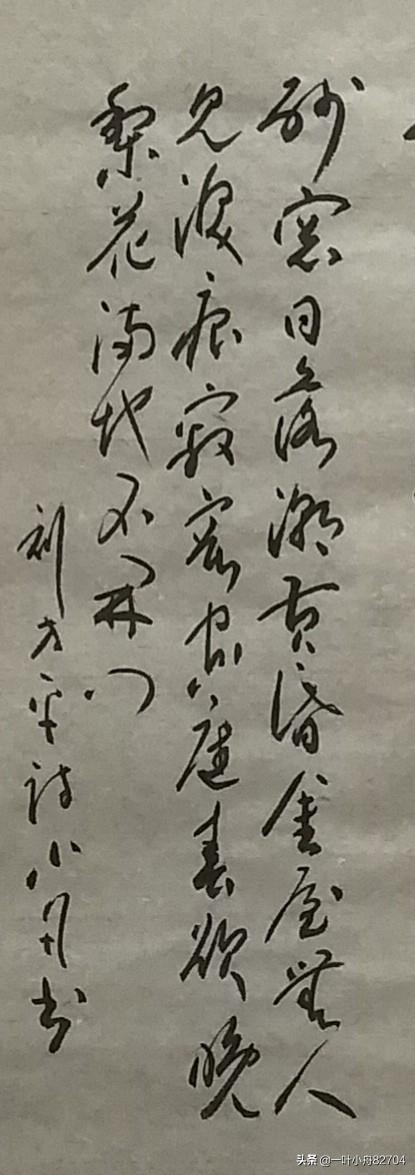 纱窗日落渐黄昏金屋無人
见淚痕寂寞空庭春欲晚
梨花满地不开门
刘方平诗小舟书
头条 @一叶小舟82704